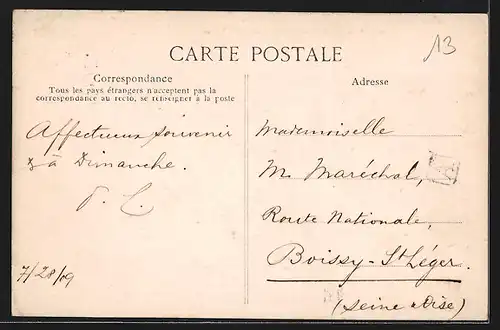 13
CARTE POSTALE
Correspondance
Tous les pays étrangers n'acceptent pas la
correspondance au recto, se renseigner à la poste
Adresse
Affectueux souvenir
& à Dimanche.
P. L.
7/28/09
Mademoiselle
M. Maréchal,
Route Nationale,
Boissy-St Léger.
(Seine & Oise)